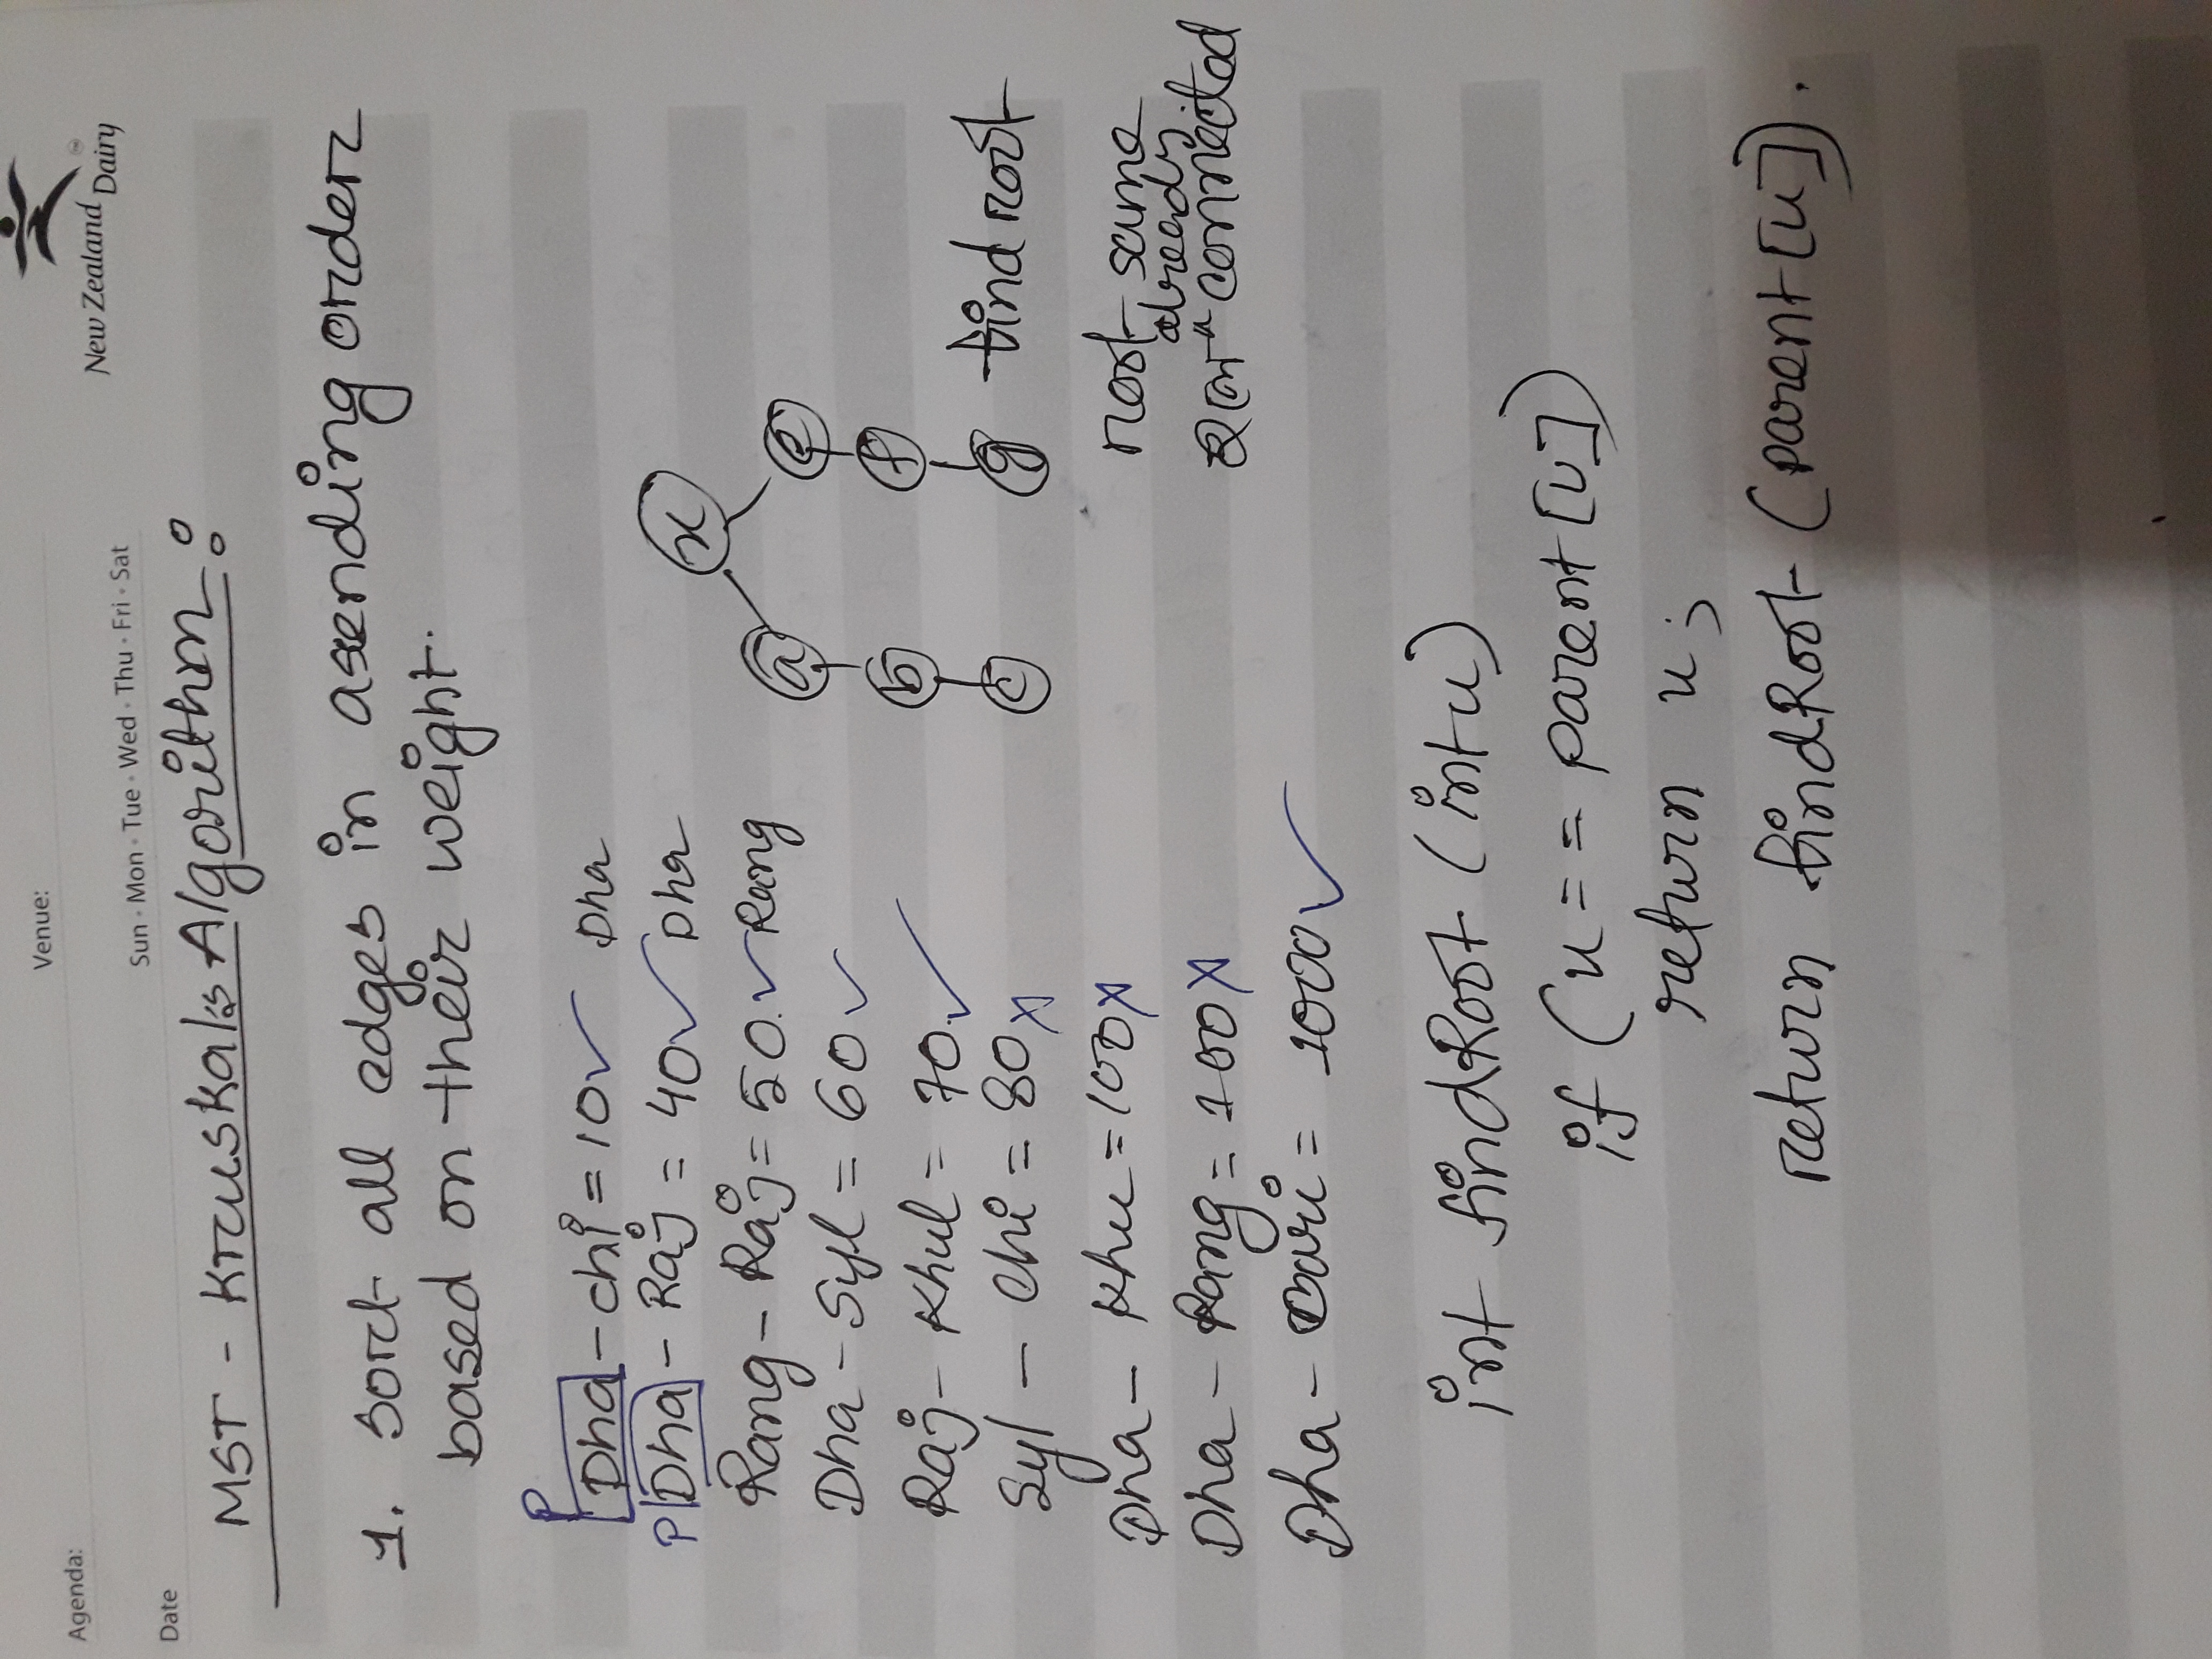 Agenda:
Venue:
New Zealand Dairy
TM
Sun · Mon · Tue · Wed · Thu · Fri · Sat
Date
MST - Kruskals Algorithm :
1. sort all edges in asending order
based on their weight.
P
Dha - chi = 10 ✓ Dha
P Dha - Raj = 40 ✓ Dha
Rang - Raj = 50. ✓ Rang
Dha - Syl = 60 ✓
Raj - Khul = 70. ✓
Syl - Chi = 80 x
Dha - Khu = 100 x
Dha - Rang = 100 x
Dha - Bari = 1000 ✓
x
a e
b f
c g find root
root same
already
হলে connected
int findRoot (int u)
if (u == parent [u])
return u ;
return findRoot (parent [u]) .